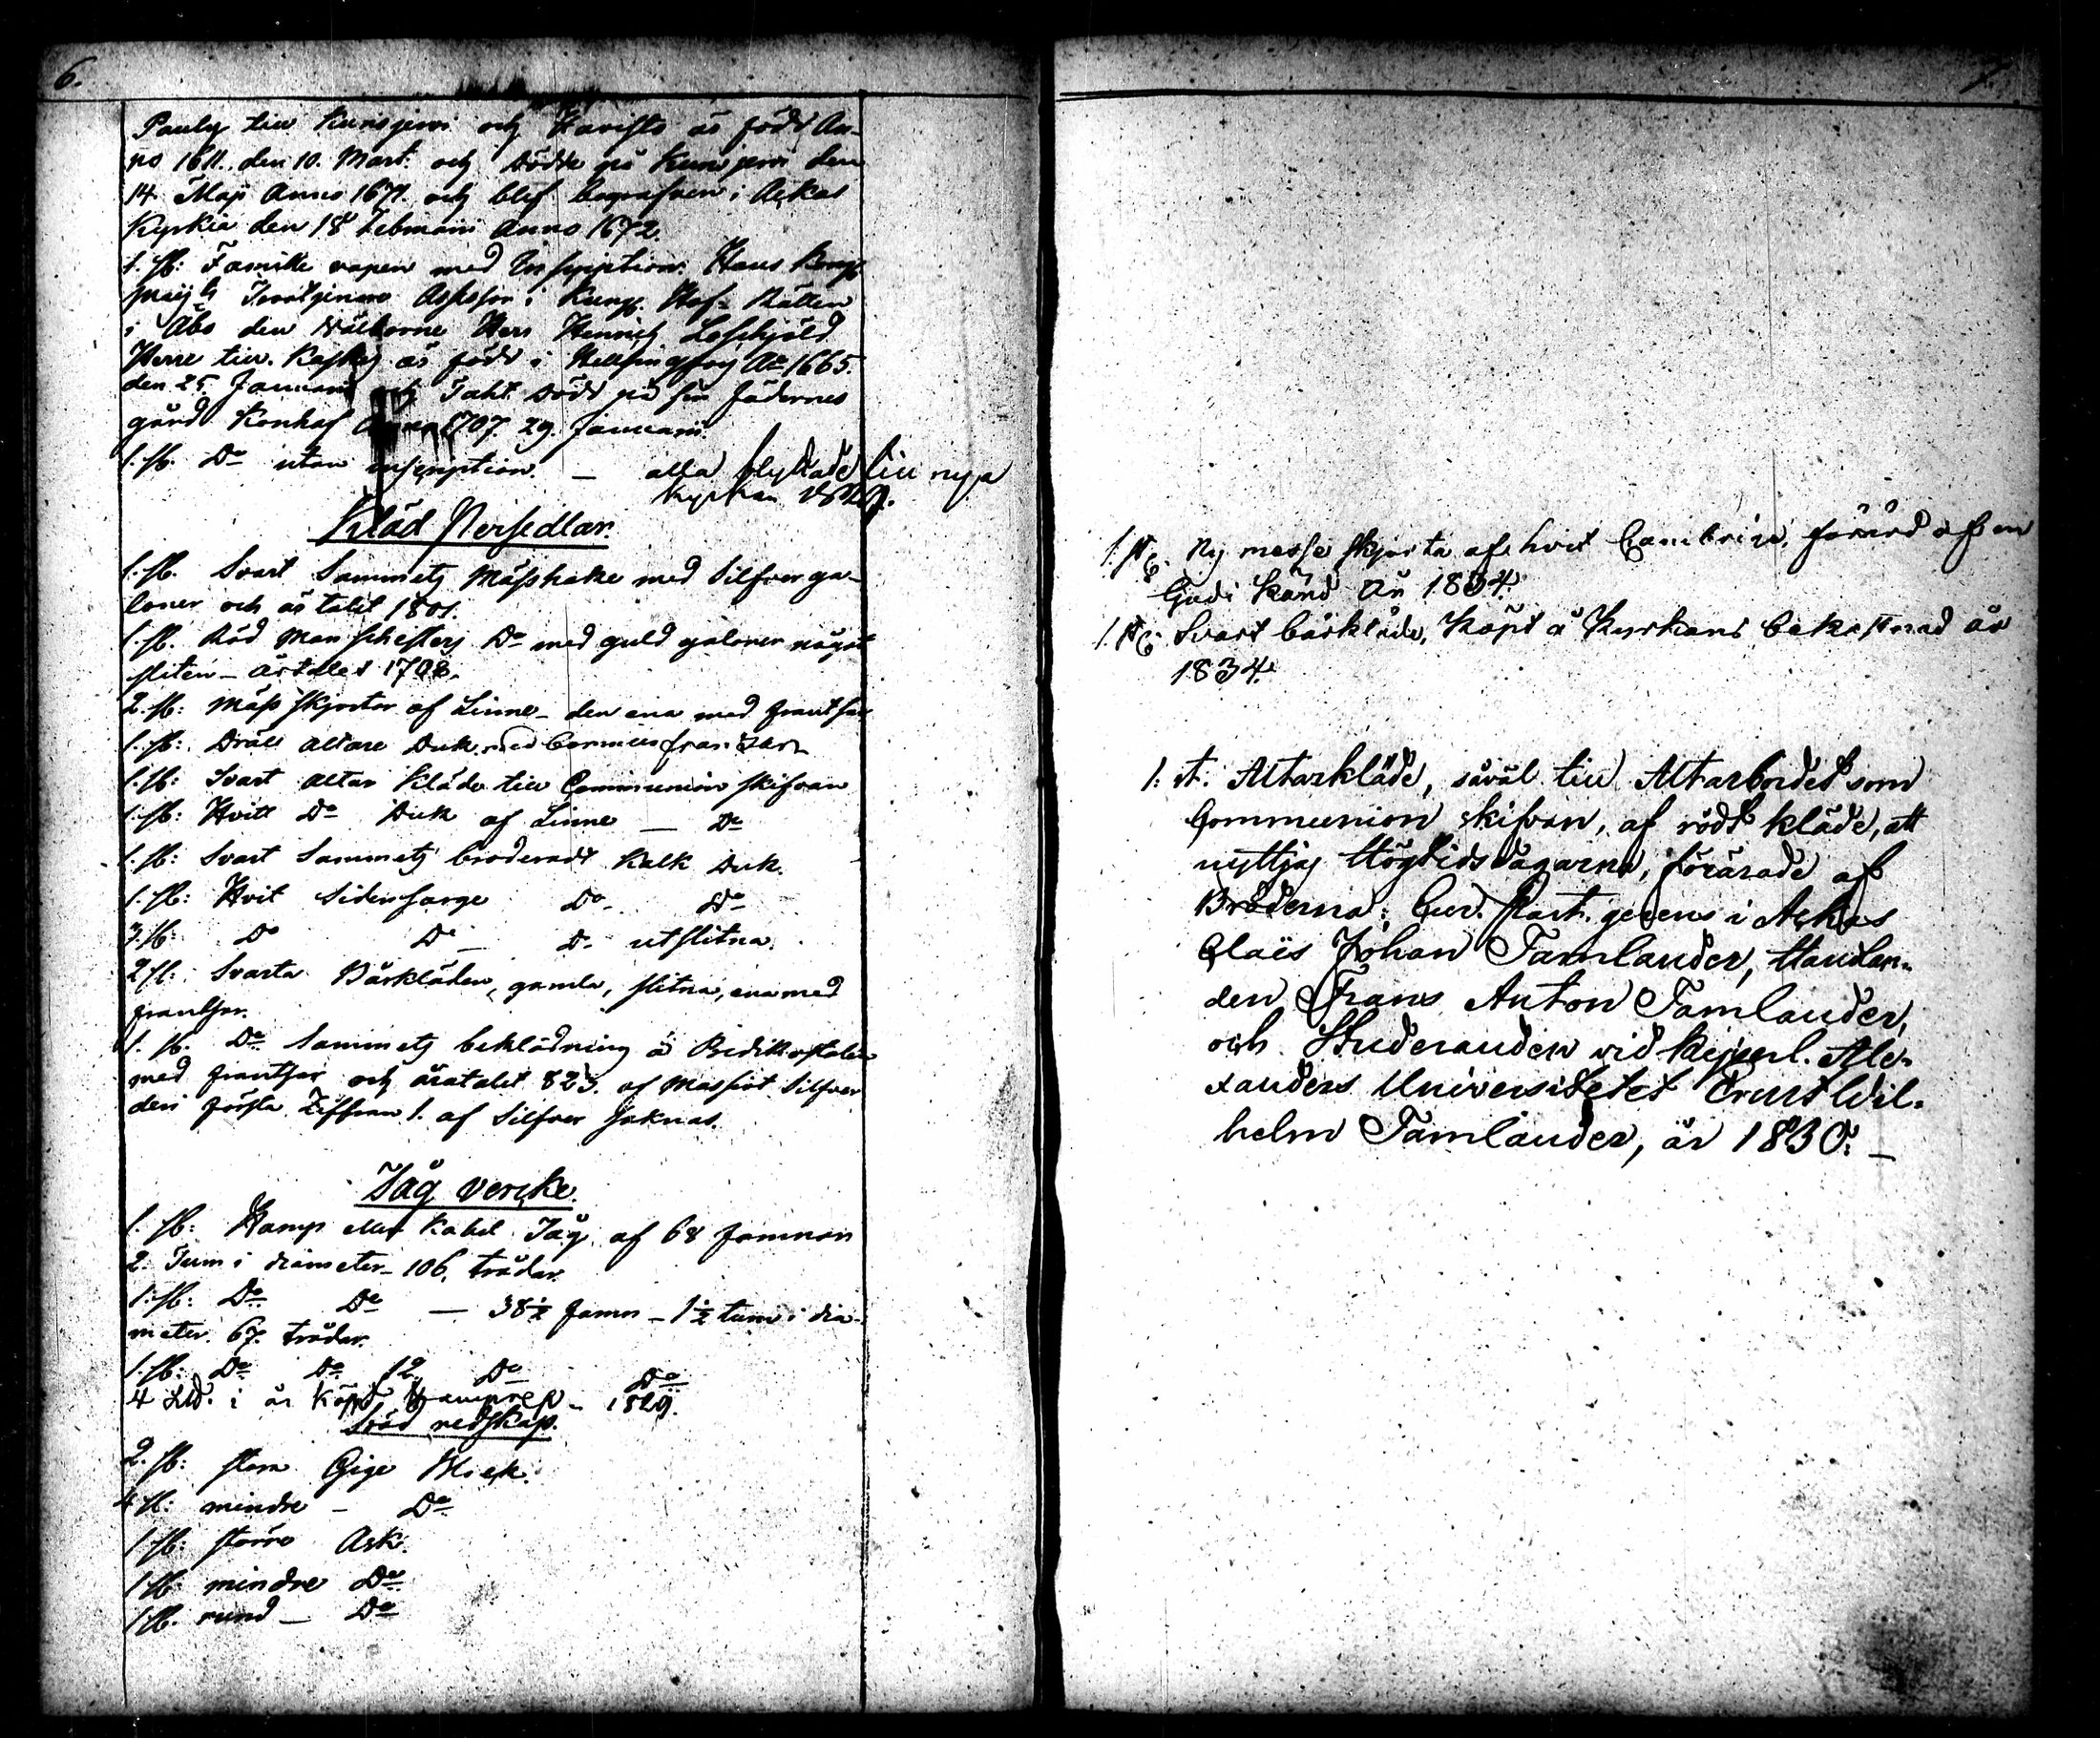 6.
Pauly till Kurisjerfvi och Haristo är född An-
no 1611. den 10. Mart: och dödde på Kurisjerfvi den
14 Maji Anno 1671. och blef begrafven i Ackas
Kyrkia den 18 Februarii Anno 1672.
1. st: Famille vapen med Inscription: Hans Kongl
Maijts Assessor i Kungl. Hof-Rätten
i Åbo den Wälborne Herr Henrich
Herre till är född i Hellsingfors Ao 1665
den 25 Januarii och dödt på sin fädernes
gård Konhof Anno 1707. 29. Januarii.
1. st. Do utan inscription. — alla flyttade till nya
kyrkan
Kläd Persedlar.
1. st. Svart Sammets Mässhake med Silfver ga-
loner och årtalet 1801.
1. st. Röd Manschesters Do med guld galoner något
sliten – årtalet 1708.
2. st: Mäss skjortor af Linne – den ena med frantsar
1. st: Dräll Altare Duk med
1. st: Svart Altar kläde till Communion skifvan
1. st: Hvitt Do Duk af Linne — Do
1. st: Svart Sammets broderadt Kalk Duk.
1. st: Hvit Sidensarge Do Do
3. st: Do Do — Do utslitna.
2 st: Svarta Bårkläden, gamla, slitna, ena med
frantsar.
1. st. Do Sammets beklädning å Predikostolen
med frantsar och åratalet 823. af Massivt Silfver
den första Ziffran 1. af Silfver saknas.
Tåg vercke.
1. st: Hamp eller Kabel Tåg af 68 famnar
2. Tum i diameter – 106. trådar.
1. st: Do Do — 38½ famn – 1½ tum i dia-
meter. 67. trådar.
1. st: Do Do 12 Do Do
4 L℔. i år köpt hamprep – 1829.
Träd redskap.
2. st: stora Gige Block.
4 st: mindre – Do
1 st: större Ask.
1 st: mindre Do
1 st. rund — Do
7.
1. st. Ny messe skjorta af hvit Cambrick, förärd af en
Gudi känd År 1834.
1. st. Svart bårkläde, köpt å Kyrkans bekostnad år
1834.
1: st. Altarkläde, såväl till Altarbordet som
Communion skifvan, af rödt kläde, att
nyttjas Högtidsdagarna, förärade af
Bröderna: Cur. Past. gerens i Ackas
Claës Johan Tamlander, Handlan-
den Frans Anton Tamlander,
och Studeranden vid Kejserl. Ale-
xanders Universitetet Ernst Wil-
helm Tamlander, år 1830. —